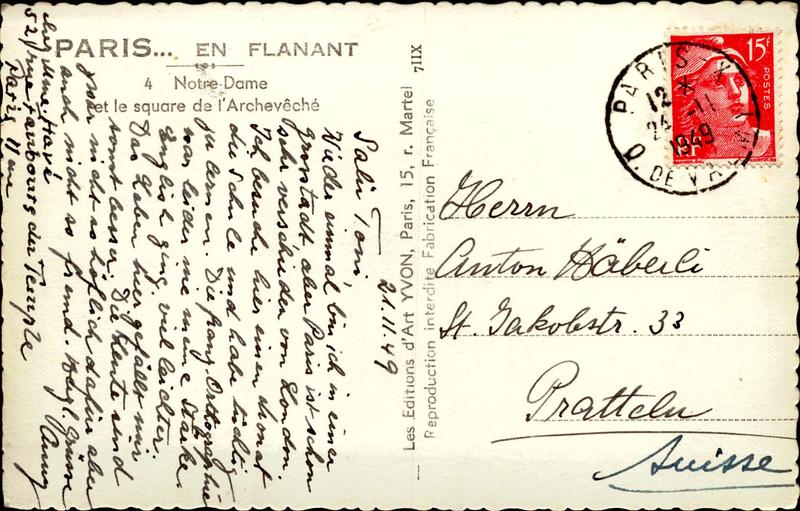 PARIS... EN FLANANT
4 Notre-Dame
et le square de l'Archevêché
21.11.49
Salü Toni,
Wieder einmal bin ich in einer
Grosstadt aber Paris ist schon
sehr verschieden von London.
Ich besuche hier einen Monat
die Schule und habe tüchtig
zu lernen. Die franz. Orthographie
war leider nie meine Stärke.
Englisch ging viel leichter.
Das Leben hier gefällt mir
sonst besser. Die Leute sind
zwar nicht so höflich dafür aber
auch nicht so fremd. Herzl. Grüsse
chez Mme
52, rue Faubourg du Temple
Paris 11me
Les Editions d'Art YVON, Paris, 15, r. Martel
Reproduction interdite Fabrication Française
7IIX
15F
POSTES
RF
PARIS
12
24-11
1949
Herrn
Anton Häberli
St. Jakobstr. 33
Pratteln
Suisse